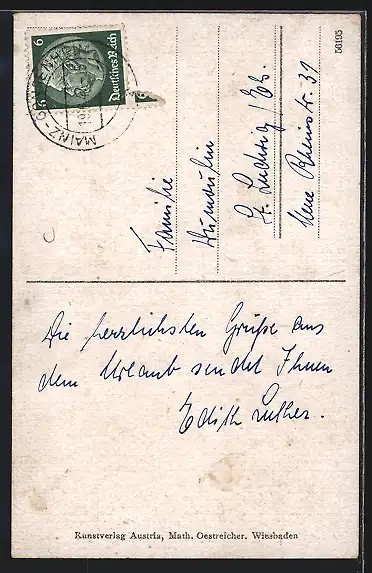 Deutsches Reich
6
6
MAINZ
50195
Familie
St. Ludwig / Els.
Neue Rheinstr. 39
Die herzlichsten Grüße aus
dem Urlaub sendet Ihnen
Edith Luther.
Kunstverlag Austria, Math. Oestreicher, Wiesbaden